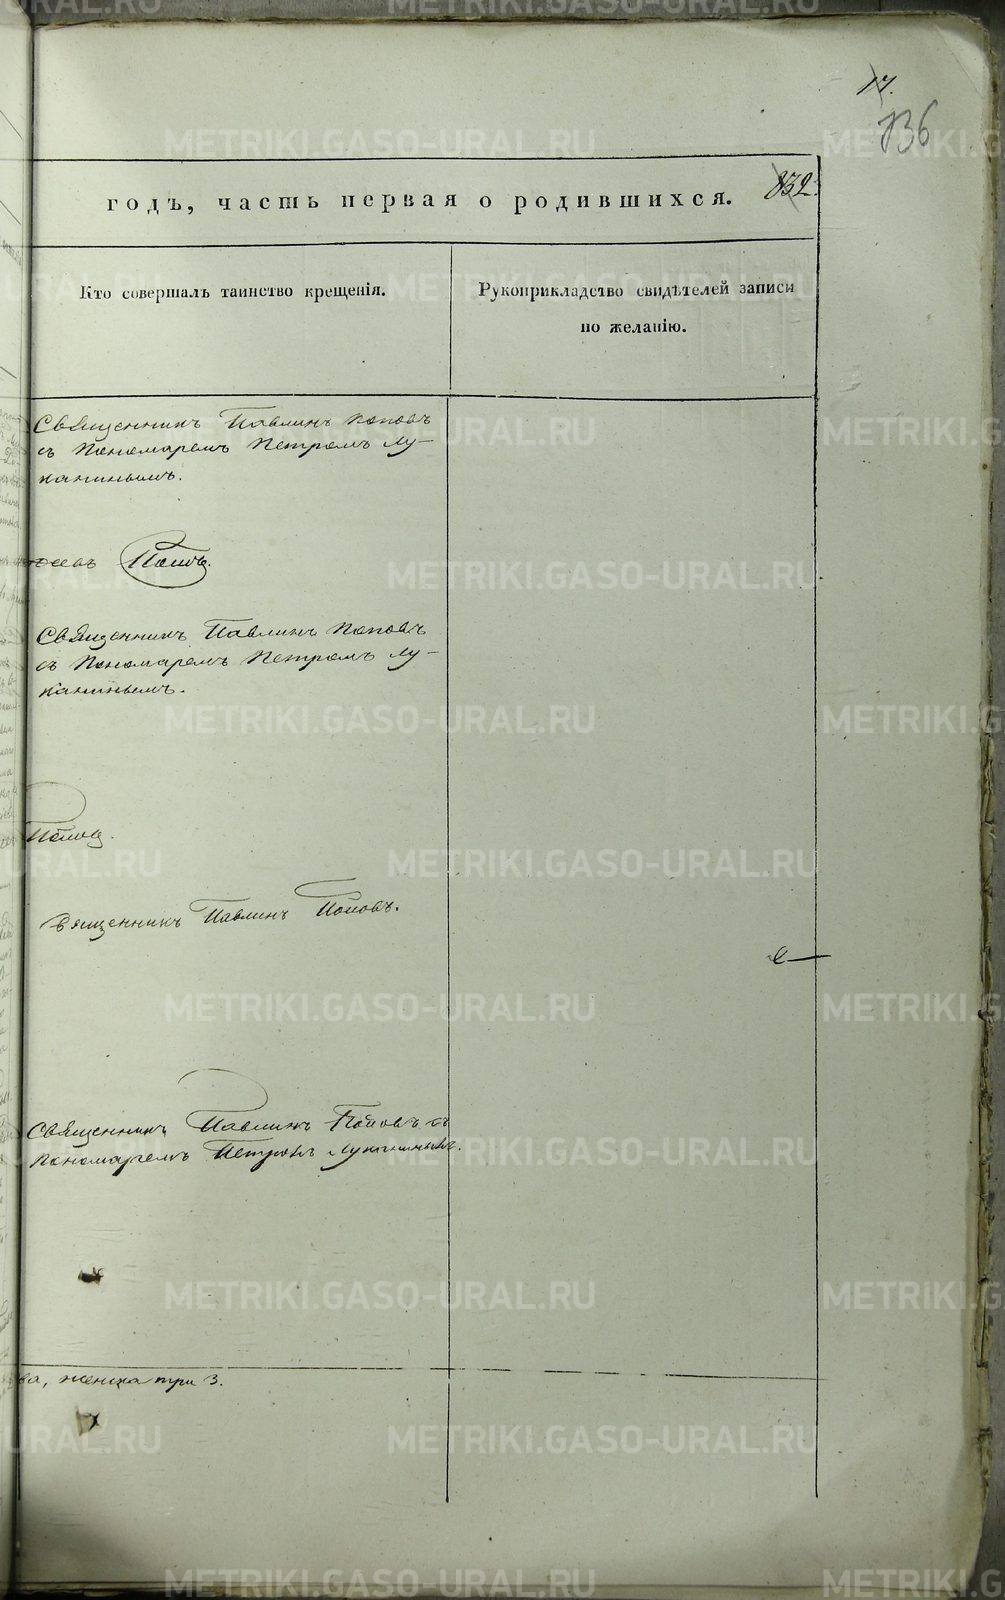 17.
136
832.
годъ, часть первая о родившихся.
Кто совершалъ таинство крещенія.
Рукоприкладство свидѣтелей записи
по желанію.
Священникъ Павлинъ Поповъ
съ Пономаремъ Петромъ Лу-
канинымъ.
Священникъ Павлинъ Поповъ
съ Пономаремъ Петромъ Лу-
канинымъ.
Священникъ Павлинъ Поповъ.
Священникъ Павлинъ Поповъ съ
Пономаремъ Петромъ Луканинымъ.
ва, женска три 3.
METRIKI.GASO-URAL.RU